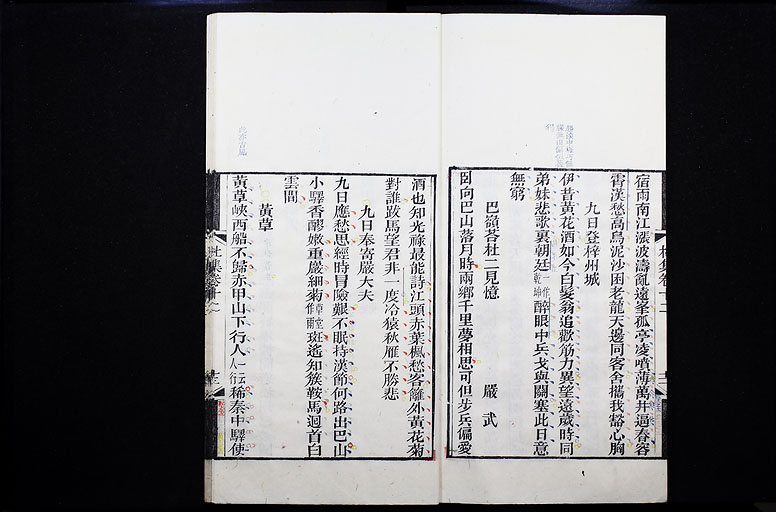 宿雨南江漲波濤亂遠峯孤亭凌噴薄萬井逼舂容
霄漢愁高鳥泥沙困老龍天邊同客舍攜我豁心胸
九日登梓州城
伊昔黃花酒如今白髮翁追歡筋力異望遠歲時同
弟妹悲歌裏朝廷醉眼中兵戈與關塞此日意
無窮
巴嶺荅杜二見憶
嚴武
臥向巴山落月時兩鄉千里夢相思可但步兵偏愛
酒也知光祿最能詩江頭赤葉楓愁客籬外黃花菊
對誰跋馬望君非一度冷猿秋雁不勝悲
九日奉寄嚴大夫
九日應愁思經時冒險艱不眠持漢節何路出巴山
小驛香醪嫩重巖細菊斑遙知簇鞍馬迴首白
雲間
黃草
黃草峽西船不歸赤甲山下行人稀秦中驛使
杜集卷十二